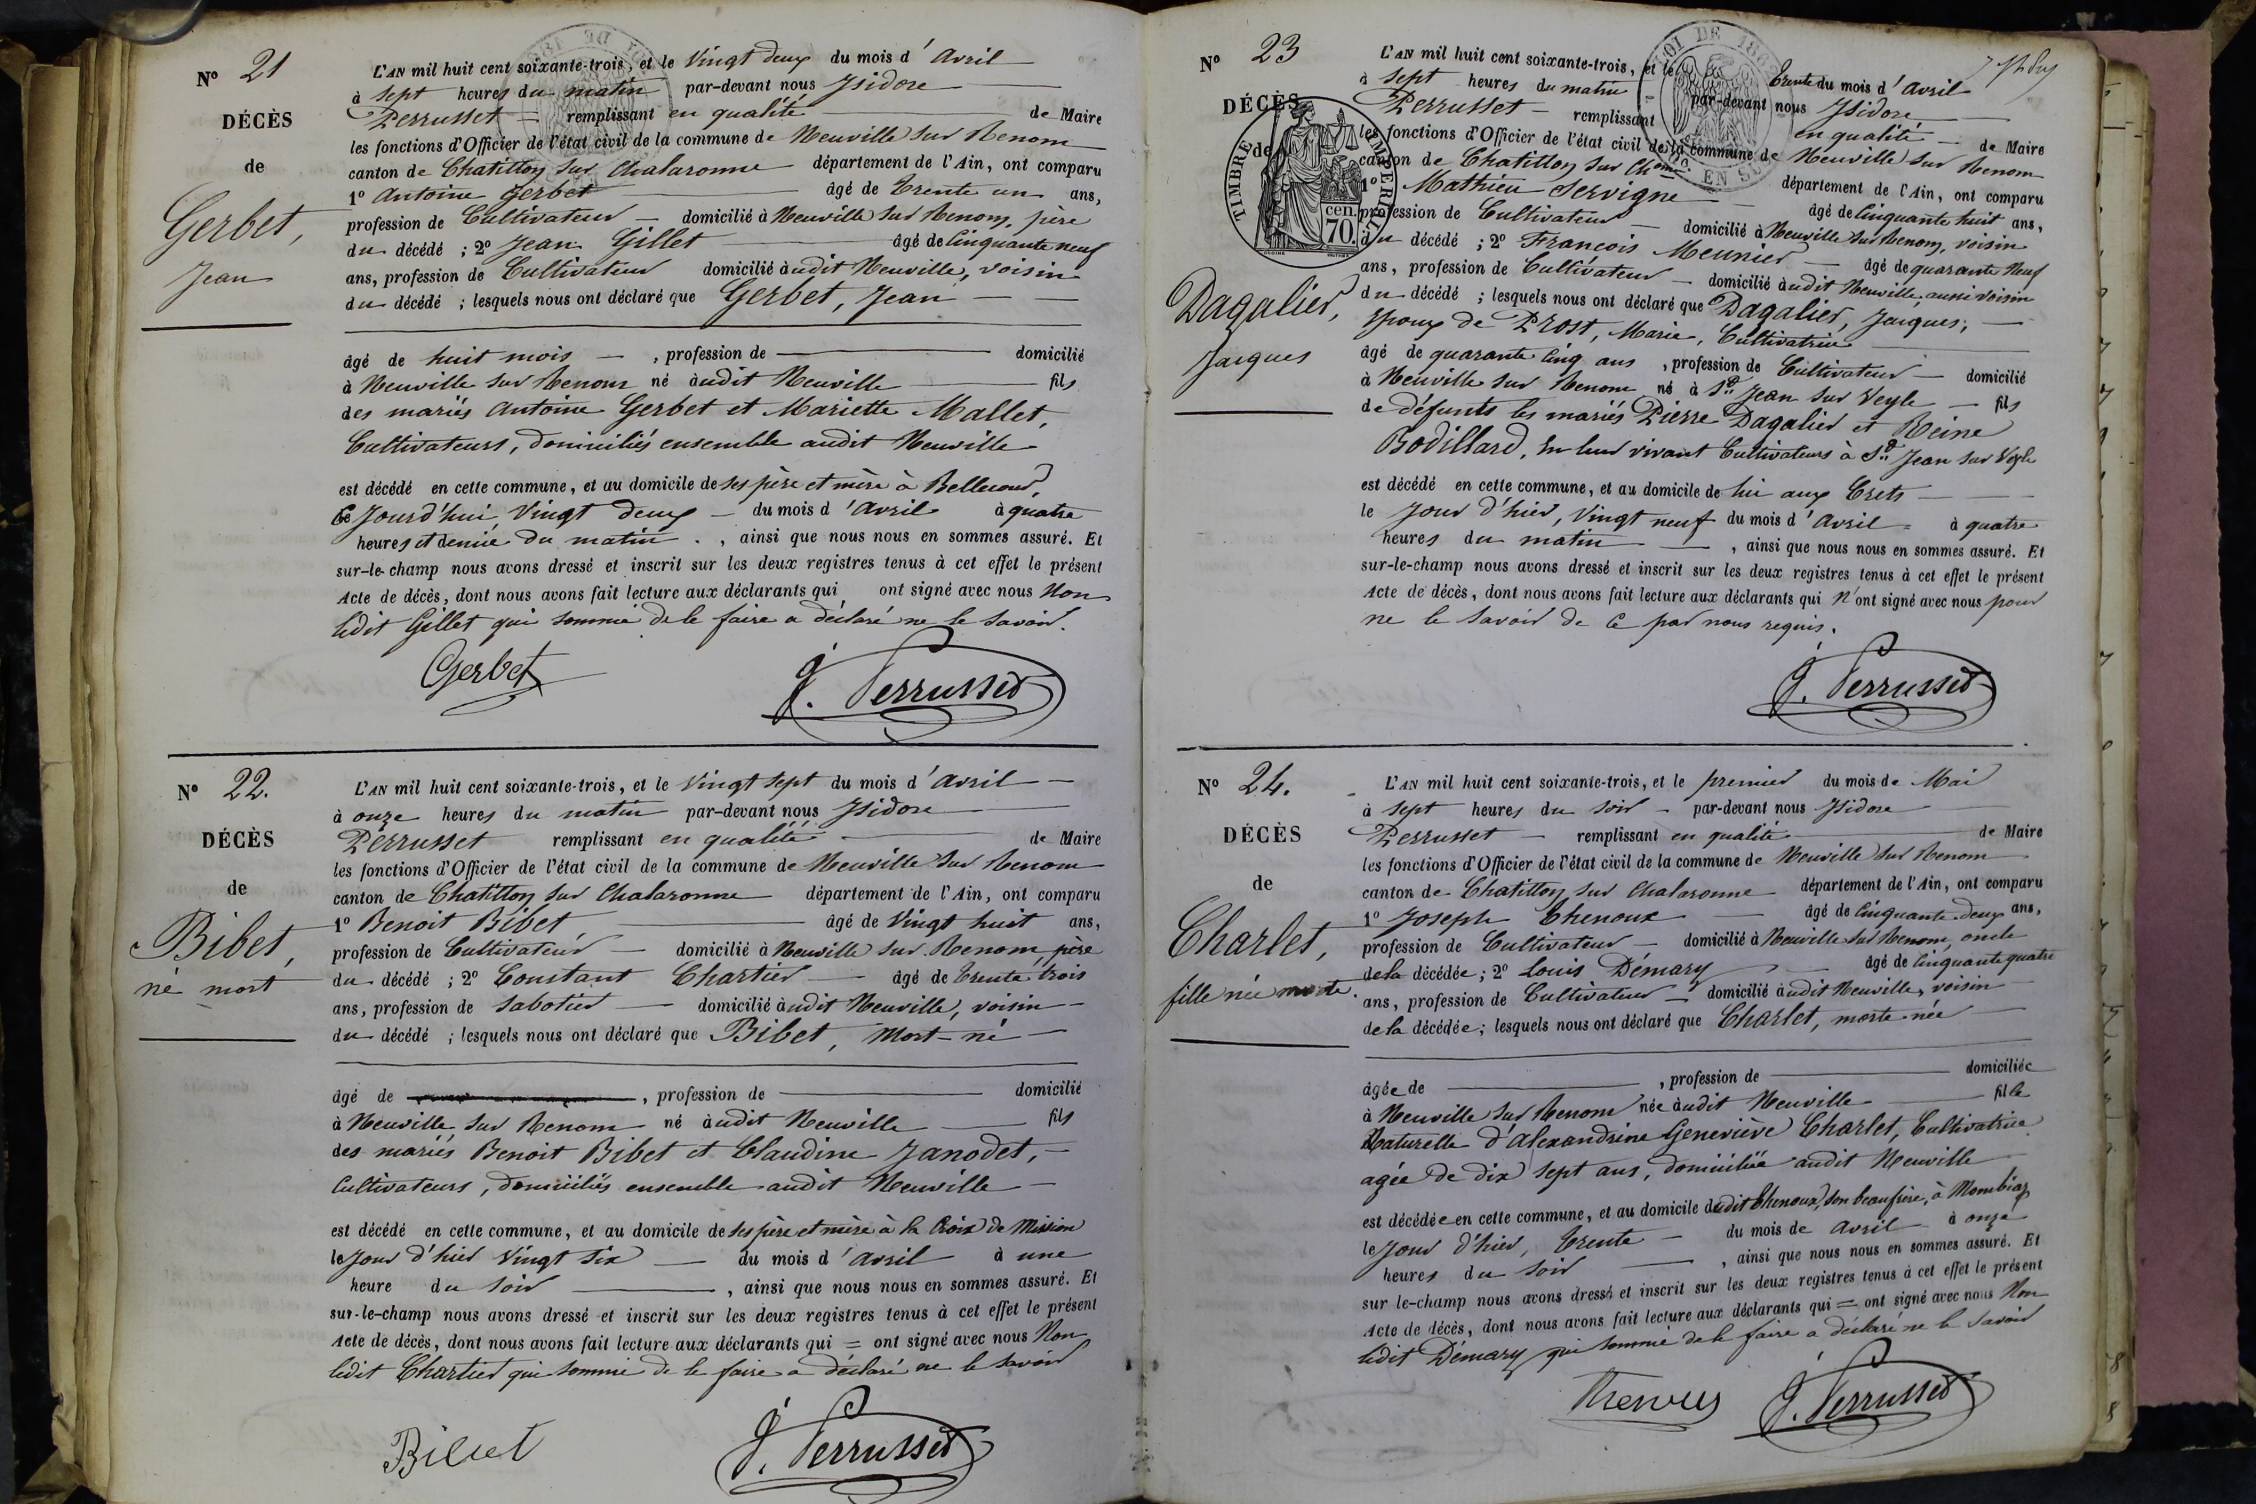 N° 21
DÉCÈS
de
Gerbet,
Jean
L'AN mil huit cent soixante-trois, et le Vingt deux du mois d'Avril
à sept heures du matin par-devant nous Isidore
Perrusset remplissant en qualité de Maire
les fonctions d'Officier de l'état civil de la commune de Neuville sur Renom
canton de Chatillon sur Chalaronne département de l'Ain, ont comparu
1° Antoine Gerbet âgé de Trente un ans,
profession de Cultivateur domicilié à Neuville sur Renom, père
du décédé ; 2° Jean Gillet âgé de Cinquante neuf
ans, profession de Cultivateur domicilié audit Neuville, voisin
du décédé ; lesquels nous ont déclaré que Gerbet, Jean
âgé de huit mois , profession de domicilié
à Neuville sur Renom né audit Neuville fils
des mariés Antoine Gerbet et Mariette Mallet,
Cultivateurs, domiciliés ensemble audit Neuville
est décédé en cette commune, et au domicile de ses père et mère à Bellecour,
Ce Jourd'hui Vingt deux du mois d'Avril à quatre
heures et demie du matin , ainsi que nous nous en sommes assuré. Et
sur-le-champ nous avons dressé et inscrit sur les deux registres tenus à cet effet le présent
Acte de décès, dont nous avons fait lecture aux déclarants qui ont signé avec nous Non
ledit Gillet qui sommé de le faire a déclaré ne le savoir.
Gerbet J. Perrusset
N° 22.
DÉCÈS
de
Bibet,
né mort
L'AN mil huit cent soixante-trois, et le Vingt sept du mois d'Avril
à onze heures du matin par-devant nous Isidore
Perrusset remplissant en qualité de Maire
les fonctions d'Officier de l'état civil de la commune de Neuville sur Renom
canton de Chatillon sur Chalaronne département de l'Ain, ont comparu
1° Benoit Bibet âgé de Vingt huit ans,
profession de Cultivateur domicilié à Neuville sur Renom, père
du décédé ; 2° Constant Chartier âgé de Trente trois
ans, profession de Sabotier domicilié audit Neuville, voisin
du décédé ; lesquels nous ont déclaré que Bibet, Mort-né
âgé de , profession de domicilié
à Neuville sur Renom né audit Neuville fils
des mariés Benoit Bibet et Claudine Janodet,
Cultivateurs, domiciliés ensemble audit Neuville
est décédé en cette commune, et au domicile de ses père et mère à la Croix de Mission
le Jour d'hier Vingt six du mois d'Avril à une
heure du soir , ainsi que nous nous en sommes assuré. Et
sur-le-champ nous avons dressé et inscrit sur les deux registres tenus à cet effet le présent
Acte de décès, dont nous avons fait lecture aux déclarants qui = ont signé avec nous Non
ledit Chartier qui sommé de le faire a déclaré ne le savoir
Bibet J. Perrusset
N° 23
DÉCÈS
de
Dagalier,
Jacques
TIMBRE IMPÉRIAL
70 cen.
L'AN mil huit cent soixante-trois, et le Trente du mois d'Avril
à sept heures du matin par-devant nous Isidore
Perrusset remplissant en qualité de Maire
les fonctions d'Officier de l'état civil de la commune de Neuville sur Renom
canton de Chatillon sur Chne département de l'Ain, ont comparu
1° Mathieu Servigne âgé de Cinquante huit ans,
profession de Cultivateur domicilié à Neuville sur Renom, voisin
du décédé ; 2° François Meunier âgé de quarante Neuf
ans, profession de Cultivateur domicilié audit Neuville, aussi voisin
du décédé ; lesquels nous ont déclaré que Dagalier, Jacques,
Epoux de Prost, Marie, Cultivatrice
âgé de quarante Cinq ans , profession de Cultivateur domicilié
à Neuville sur Renom né à St Jean sur Veyle fils
de défunts les mariés Pierre Dagalier et Reine
Bodillard, en leur vivant Cultivateurs à St Jean sur Veyle
est décédé en cette commune, et au domicile de lui aux Crets
le Jour d'hier, Vingt neuf du mois d'Avril à quatre
heures du matin , ainsi que nous nous en sommes assuré. Et
sur-le-champ nous avons dressé et inscrit sur les deux registres tenus à cet effet le présent
Acte de décès, dont nous avons fait lecture aux déclarants qui n'ont signé avec nous pour
ne le savoir de ce par nous requis.
J. Perrusset
N° 24.
DÉCÈS
de
Charlet,
fille née morte.
L'AN mil huit cent soixante-trois, et le premier du mois de Mai
à sept heures du soir par-devant nous Isidore
Perrusset remplissant en qualité de Maire
les fonctions d'Officier de l'état civil de la commune de Neuville sur Renom
canton de Chatillon sur Chalaronne département de l'Ain, ont comparu
1° Joseph Chenoux âgé de Cinquante-deux ans,
profession de Cultivateur domicilié à Neuville sur Renom, oncle
de la décédée ; 2° Louis Démary âgé de Cinquante quatre
ans, profession de Cultivateur domicilié audit Neuville, voisin
de la décédée ; lesquels nous ont déclaré que Charlet, morte-née
âgée de , profession de domiciliée
à Neuville sur Renom née audit Neuville fille
Naturelle d'Alexandrine Geneviève Charlet, Cultivatrice
agée de dix sept ans, domiciliée audit Neuville
est décédée en cette commune, et au domicile dudit Chenoux, son beaufrère, à Mombiaz
le Jour d'hier, Trente du mois de Avril à onze
heures du soir , ainsi que nous nous en sommes assuré. Et
sur le-champ nous avons dressé et inscrit sur les deux registres tenus à cet effet le présent
Acte de décès, dont nous avons fait lecture aux déclarants qui = ont signé avec nous Non
ledit Démary qui sommé de le faire a déclaré ne le savoir
J. Perrusset